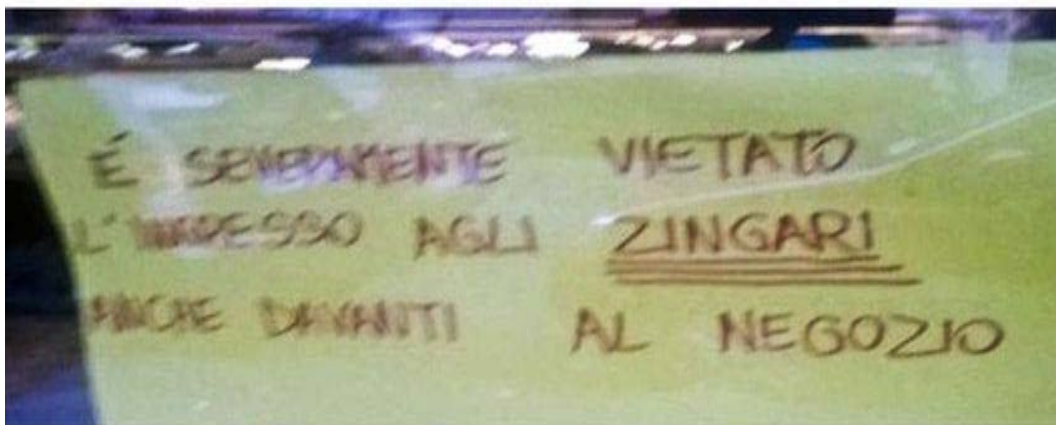 É SEVERAMENTE VIETATO
L'INGRESSO AGLI ZINGARI
ANCHE DAVANTI AL NEGOZIO